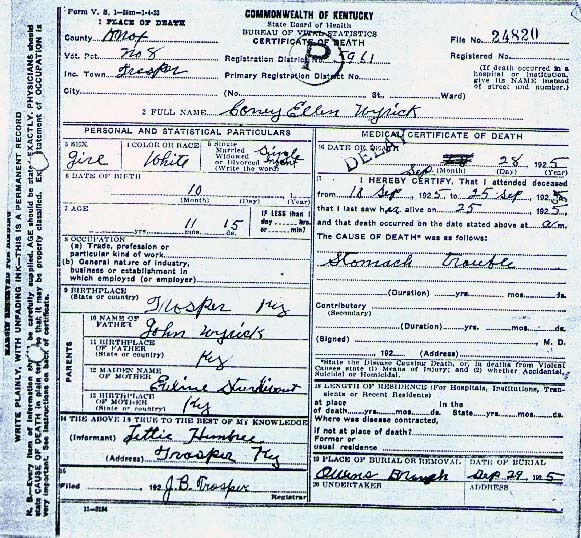 Form V. S. 1-
COMMONWEALTH OF KENTUCKY
State Board of Health
BUREAU OF VITAL STATISTICS
CERTIFICATE OF DEATH
1 PLACE OF DEATH
County Knox
Vot. Pct. No 8
Inc. Town Trosper
City (No. St., Ward)
File No. 24820
Registration District No. 5961
Registered No.
Primary Registration District No.
(If death occurred in a hospital or institution, give its NAME instead of street and number.)
2 FULL NAME Coney Ellen Wyrick
PERSONAL AND STATISTICAL PARTICULARS
3 SEX Girl
4 COLOR OR RACE White
5 Single Married Widowed or Divorced (Write the word) Single
6 DATE OF BIRTH
10
(Month) (Day) (Year)
7 AGE
yrs. 11 mos. 15 ds.
IF LESS than 1 day hrs. or min?
8 OCCUPATION
(a) Trade, profession or particular kind of work
(b) General nature of industry, business or establishment in which employed (or employer)
9 BIRTHPLACE
(State or country) Trosper Ky
PARENTS
10 NAME OF FATHER John Wyrick
11 BIRTHPLACE OF FATHER
(State or country) Ky
12 MAIDEN NAME OF MOTHER
13 BIRTHPLACE OF MOTHER
(State or country) Ky
14 THE ABOVE IS TRUE TO THE BEST OF MY KNOWLEDGE
(Informant)
(Address) Trosper Ky
15
Filed 192 J. B. Trosper
Registrar
MEDICAL CERTIFICATE OF DEATH
16 DATE OF DEATH
DELAY
Sep 28 1925
(Month) (Day) (Year)
17 I HEREBY CERTIFY, That I attended deceased
from 18 Sep, 1925 to 25 Sep, 1925,
that I last saw her alive on 25, 1925,
and that death occurred on the date stated above at a m.
The CAUSE OF DEATH* was as follows:
Stomach trouble
(Duration) yrs. mos. ds.
Contributory
(Secondary)
(Duration) yrs. mos. ds.
(Signed) M. D.
192 (Address)
*State the Disease Causing Death, or, in deaths from Violent Causes state (1) Means of Injury; and (2) whether Accidental, Suicidal or Homicidal.
18 LENGTH OF RESIDENCE (For Hospitals, Institutions, Transients or Recent Residents)
at place of death yrs. mos. ds. In the State yrs. mos. ds.
Where was disease contracted, if not at place of death?
Former or usual residence
19 PLACE OF BURIAL OR REMOVAL Owens Branch
DATE OF BURIAL Sep 29, 1925
20 UNDERTAKER
ADDRESS
WRITE PLAINLY, WITH UNFADING INK—THIS IS A PERMANENT RECORD